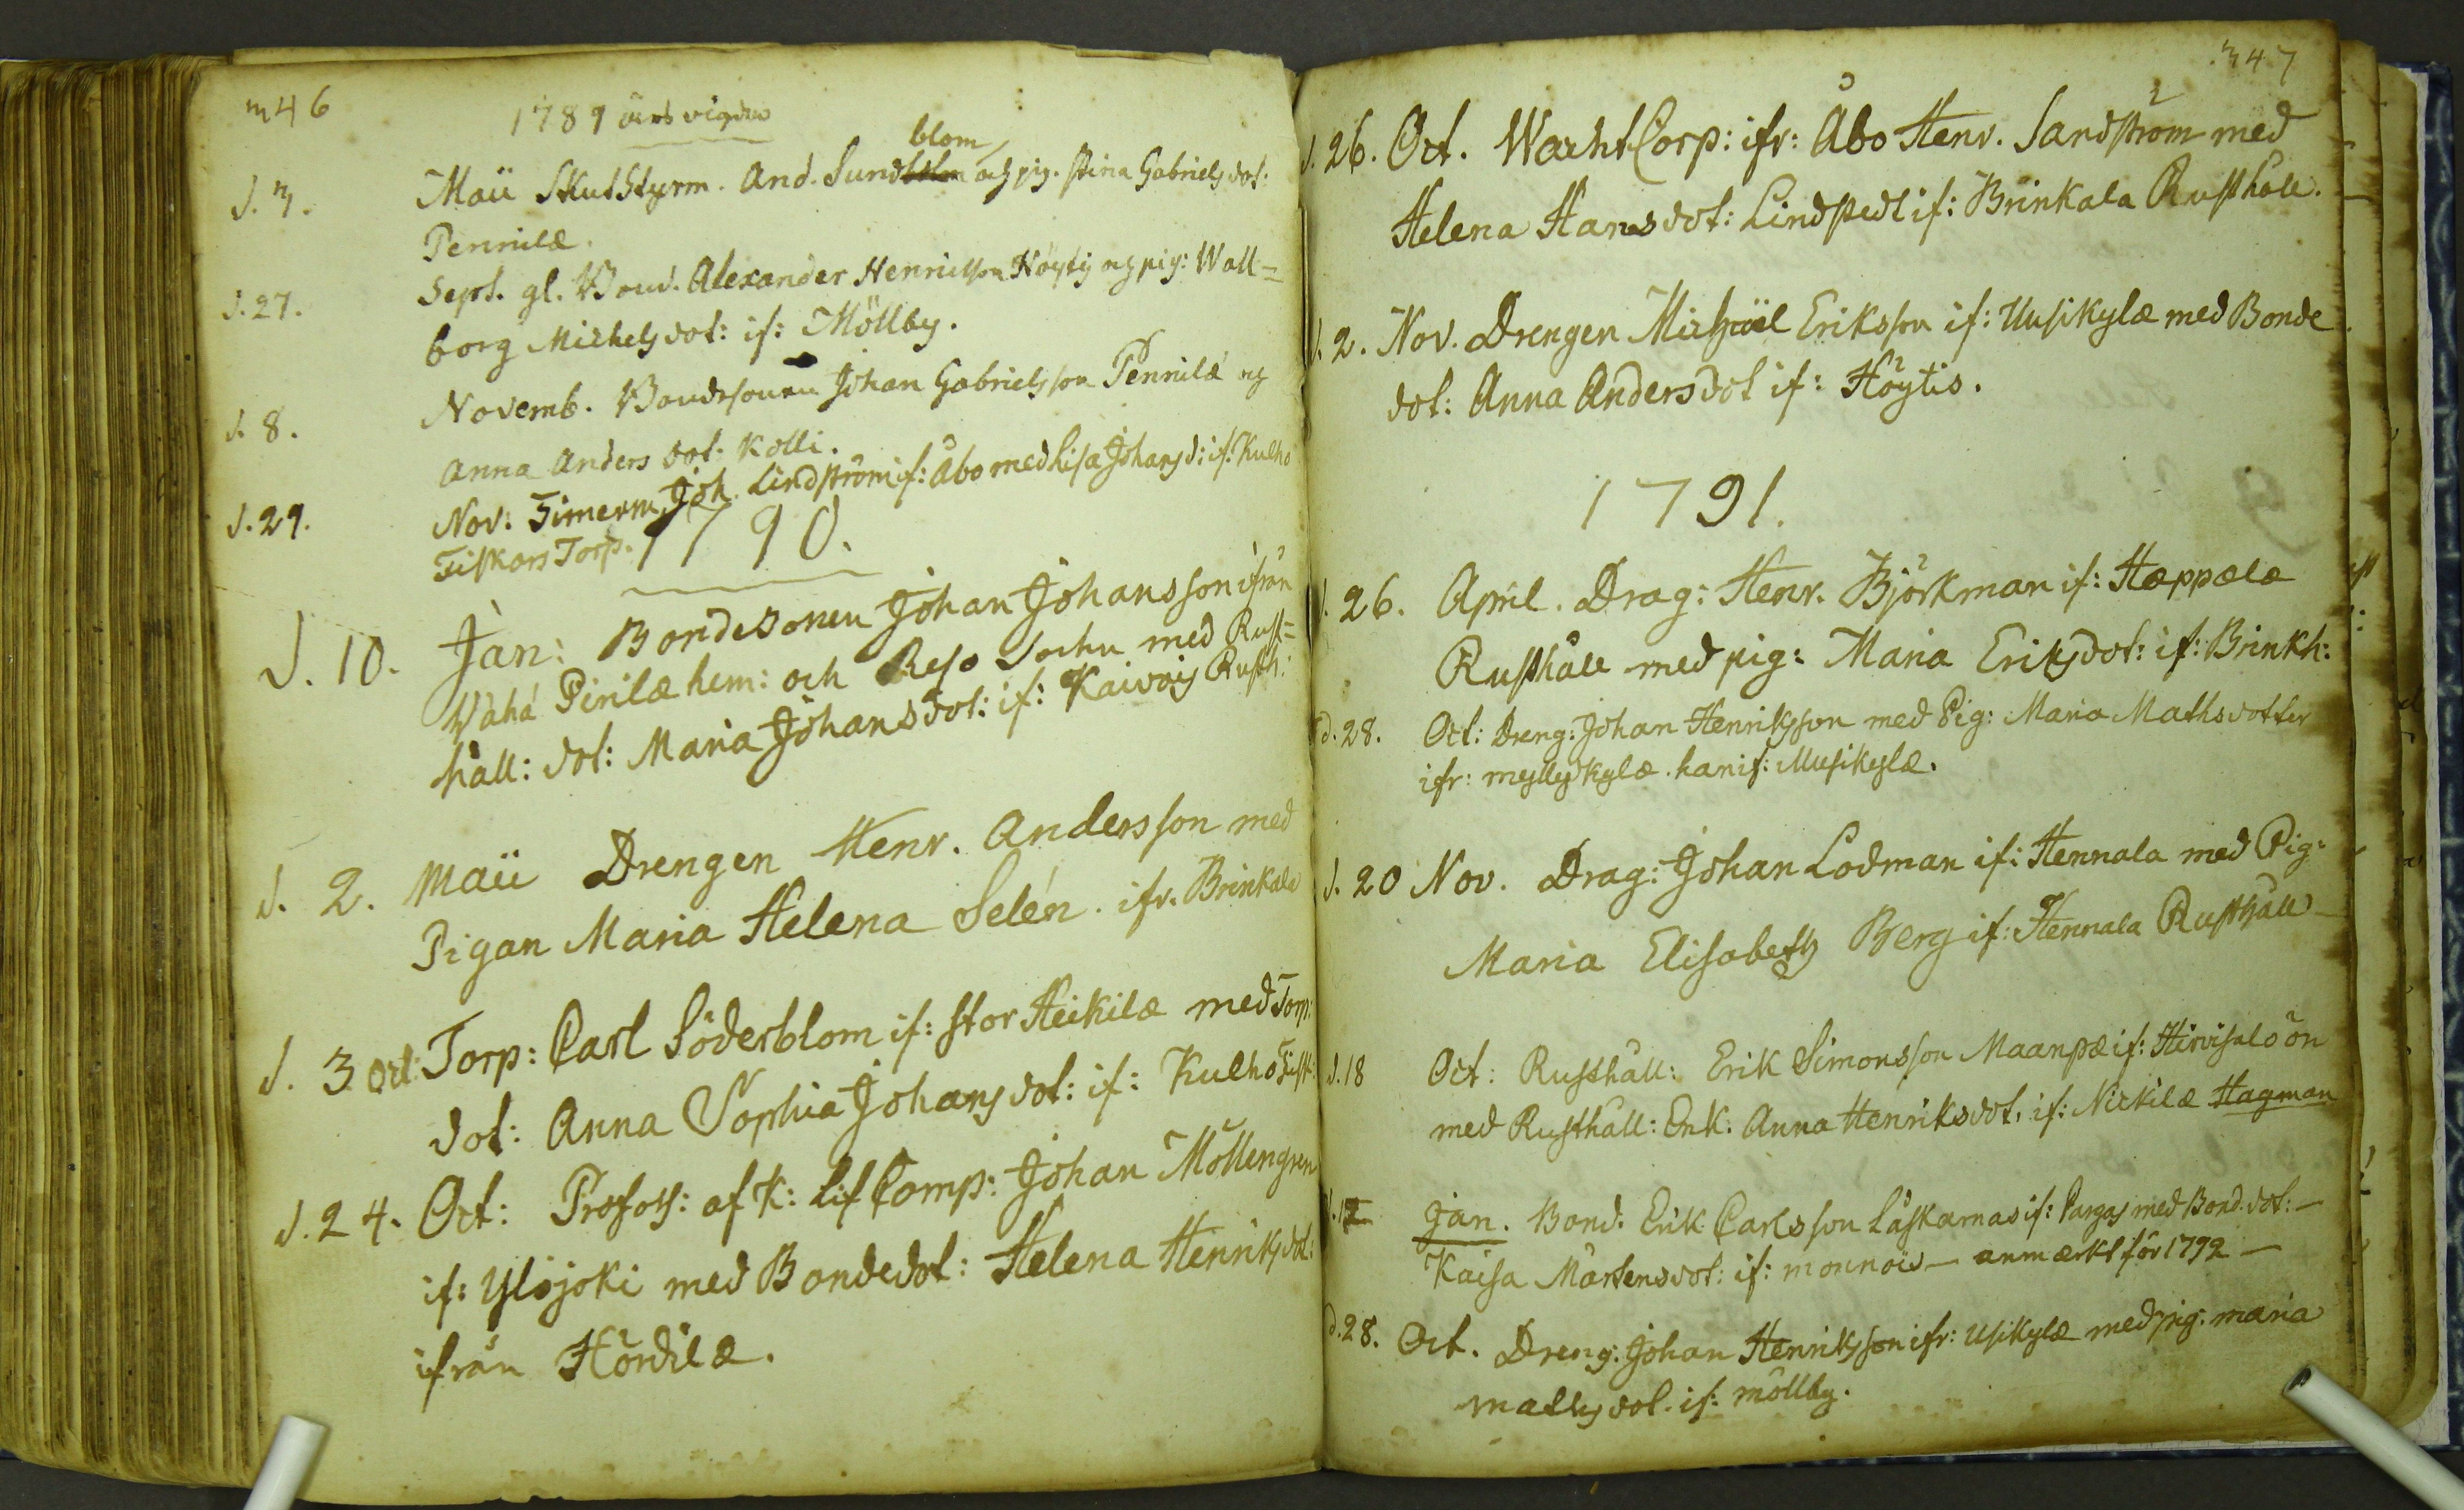 346
1789 års vigde
blom
d. 3. Maii SkutStyrm. And. Sund och pig. Stina Gabriels dot.
Pennilæ.
d. 27. Sept. gl. Bond. Alexander Henricsson Höyty och pig: Wall=
borg Michels dot: if: Möllby.
d. 8. Novemb. Bondesonen Johan Gabrielsson Pennilä och
Anna Anders dot. Kolli.
d. 29. Nov: Timerm. Joh. Lindström if: Åbo med Lisa Johans d: if: Kulho
Fiskars Torp.
1790.
d. 10. Jan: Bondesonen Johan Johansson ifrån
Wähä Pirilæ hem: och Reso Sochn med Rust=
håll: dot: Maria Johansdot: if: Kaivois Rusth:
d. 2. Maii Drengen Henr. Andersson med
Pigan Maria Helena Selén. ifr. Brinkala
d. 3 Oct: Torp: Carl Söderblom if: Stor Heikilæ med Torp:
dot: Anna Sophia Johans dot: if: Kulho Fisk:
d. 24. Oct: Profoss: af K: Lif Comp: Johan Möllengren
if: Ylijoki med Bondedot: Helena Henriks dot:
ifrån Hördilæ.
347
d. 26. Oct. WachtCorp: ifr: Åbo Henr. Sandström med
Helena Hansdot: Lindstedt if: Brinkala Rusthåll.
d. 2. Nov. Drengen Michael Eriksson if: Uusikylæ med Bonde
dot: Anna Andersdot if: Höytis.
1791.
d. 26. April. Drag: Henr. Björkman if: Hæppælæ
Rusthåll med pig: Maria Eriksdot: if: Brinkh:
d. 28. Oct: Dreng: Johan Henriksson med Pig: Maria Mathsdotter
ifr: myllykylæ. han if: Uusikylæ.
d. 20 Nov. Drag: Johan Lodman if: Hennala med Pig:
Maria Elisabeth Berg if: Hennala Rusthåll
d. 18 Oct: Rusthåll: Erik Simonsson Maanpæ if: Hirvisalo ön
med Rusthåll: Enk: Anna Henriksdot. if: Nickilæ Hagman
d. 12 Jan. Bond. Erik Carlsson Läskarnas if: Pargas med Bond. dot:
Kaisa Mårtensdot: if: monnois anmærkt för 1792
d. 28. Oct. Dreng: Johan Henriksson ifr: Usikylæ med pig: maria
maths dot. if: möllby.